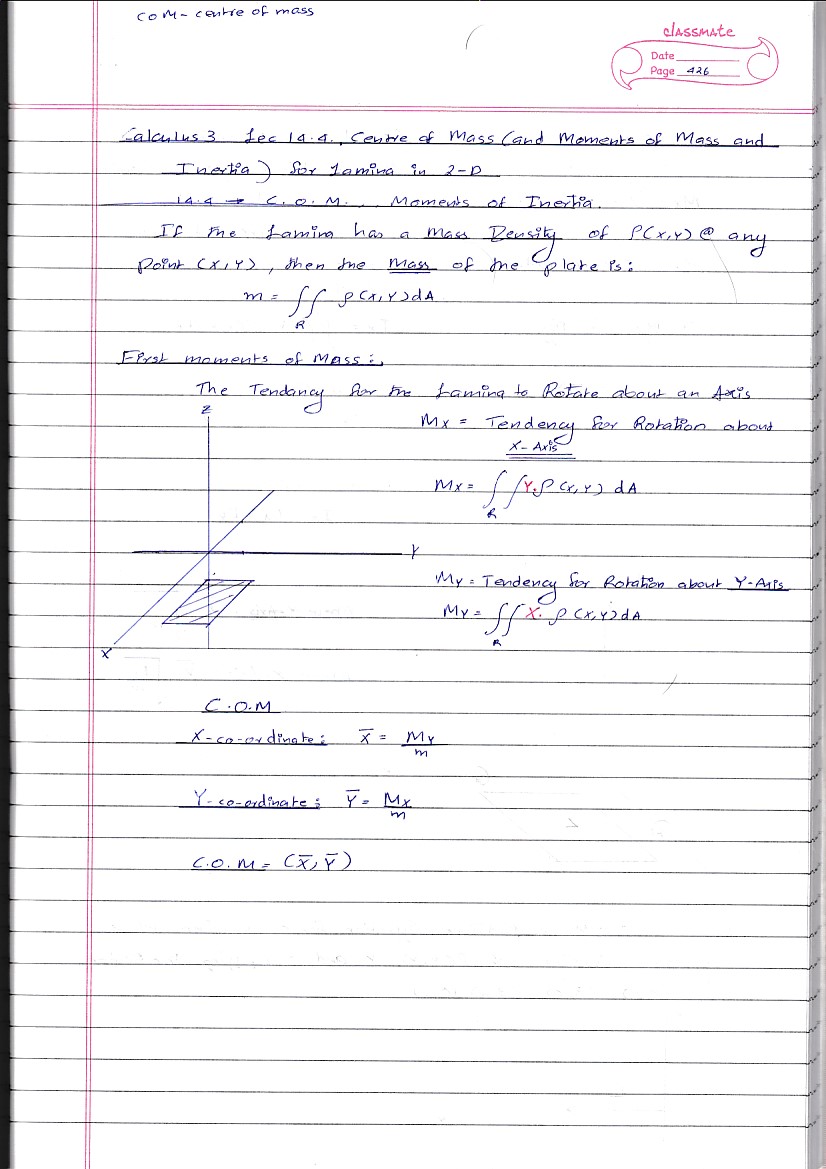 COM - centre of mass
classmate
Date
Page 426
Calculus 3 Lec 14.4., Centre of Mass (and Moments of Mass and
Inertia) for Lamina in 2-D
14.4 → C.O.M., Moments of Inertia.
If the Lamina has a Mass Density of ρ(x,y) @ any
point (x,y), then the Mass of the plate is:
m = ∬ ρ(x,y)dA
R
First moments of Mass:
The Tendancy for the Lamina to Rotate about an Axis
Z
Mx = Tendency for Rotation about
X-Axis
Mx = ∫∫ Y.ρ(x,y) dA
R
Y
My = Tendency for Rotation about Y-Axis
My = ∫∫ X. ρ(x,y)dA
R
X
C.O.M
X-co-ordinate: X̅ = My/m
Y-co-ordinate: Y̅ = Mx/m
C.O.M = (X̅, Y̅)